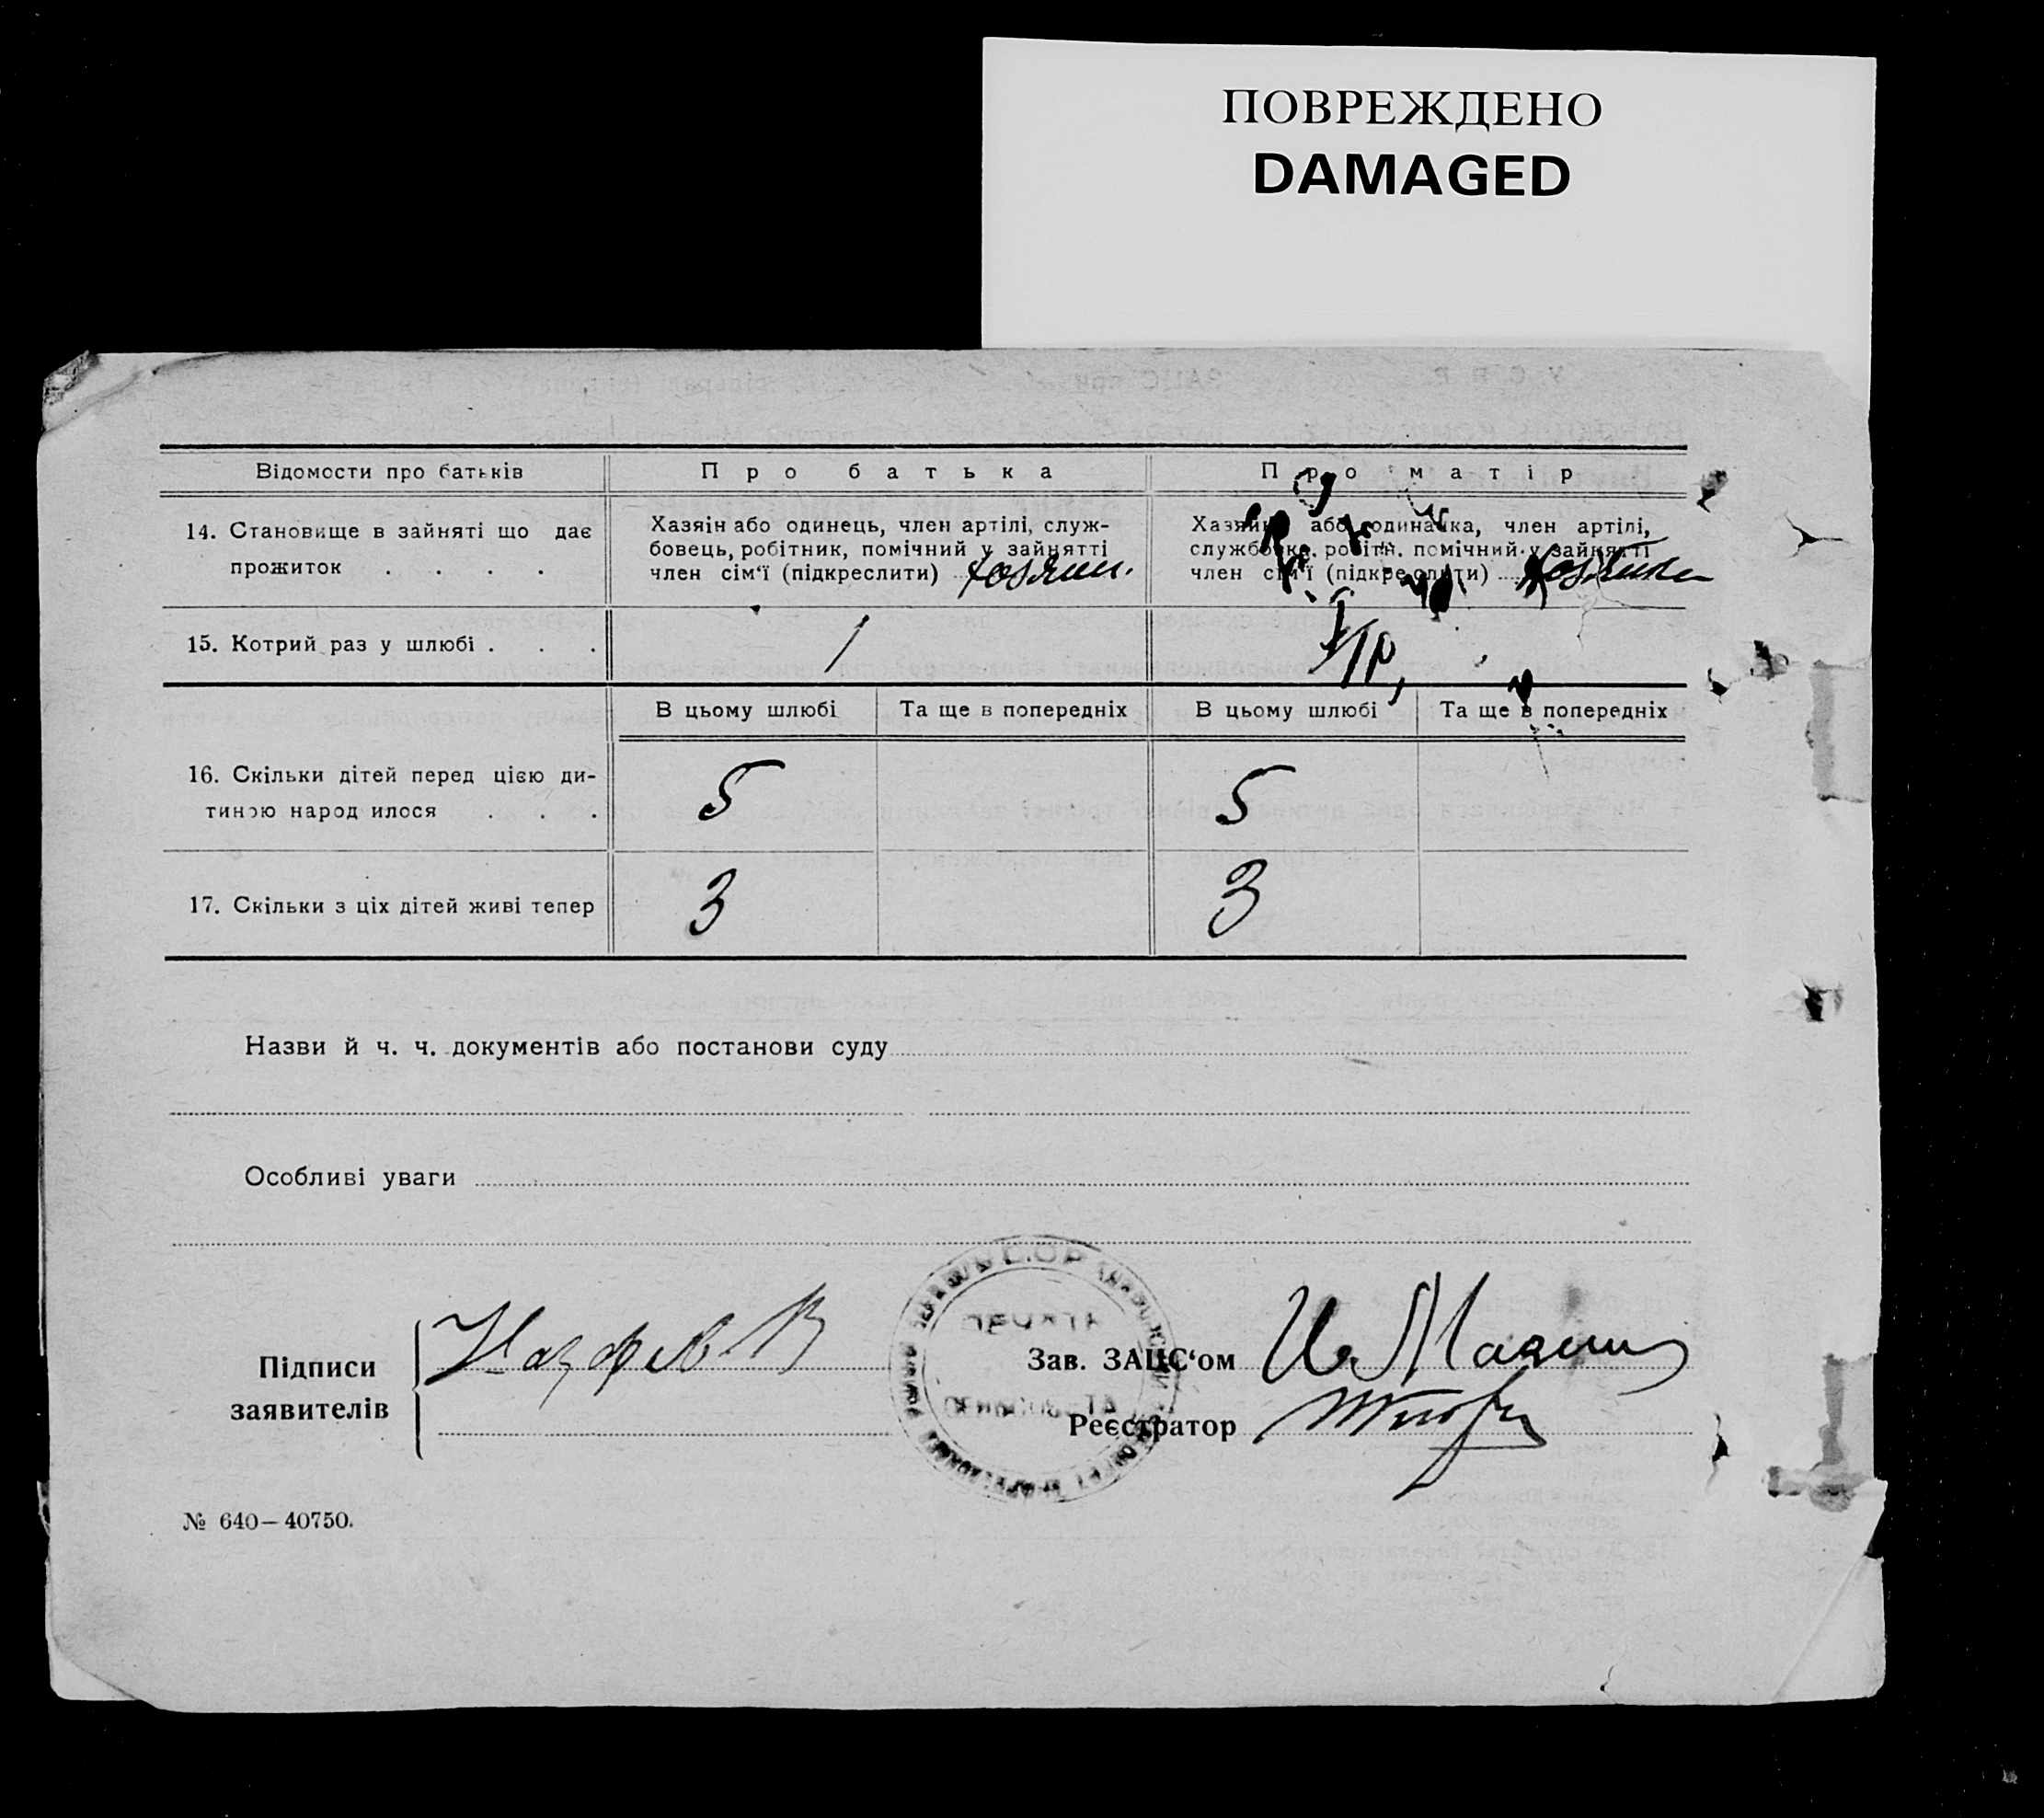 ПОВРЕЖДЕНО
DAMAGED
Відомости про батьків
Про батька
Про матір
14. Становище в зайняті що дає
прожиток . . . .
Хазяін або одинець, член артілі, служ-
бовець, робітник, помічний у зайнятті
член сім'ї (підкреслити) хозяин.
Хазяйка або одиначка, член артілі,
службовка, робітн. помічний у зайнятті
член сім'ї (підкреслити) хозяйка
15. Котрий раз у шлюбі . . .
1
В цьому шлюбі
Та ще в попередніх
В цьому шлюбі
Та ще в попередніх
16. Скільки дітей перед цією ди-
тиною народилося . . .
5
5
17. Скільки з ціх дітей живі тепер
3
3
Назви й ч. ч. документів або постанови суду
Особливі уваги
Підписи
заявителів
Зав. ЗАЦС‘ом
Реєстратор
№ 640—40750.